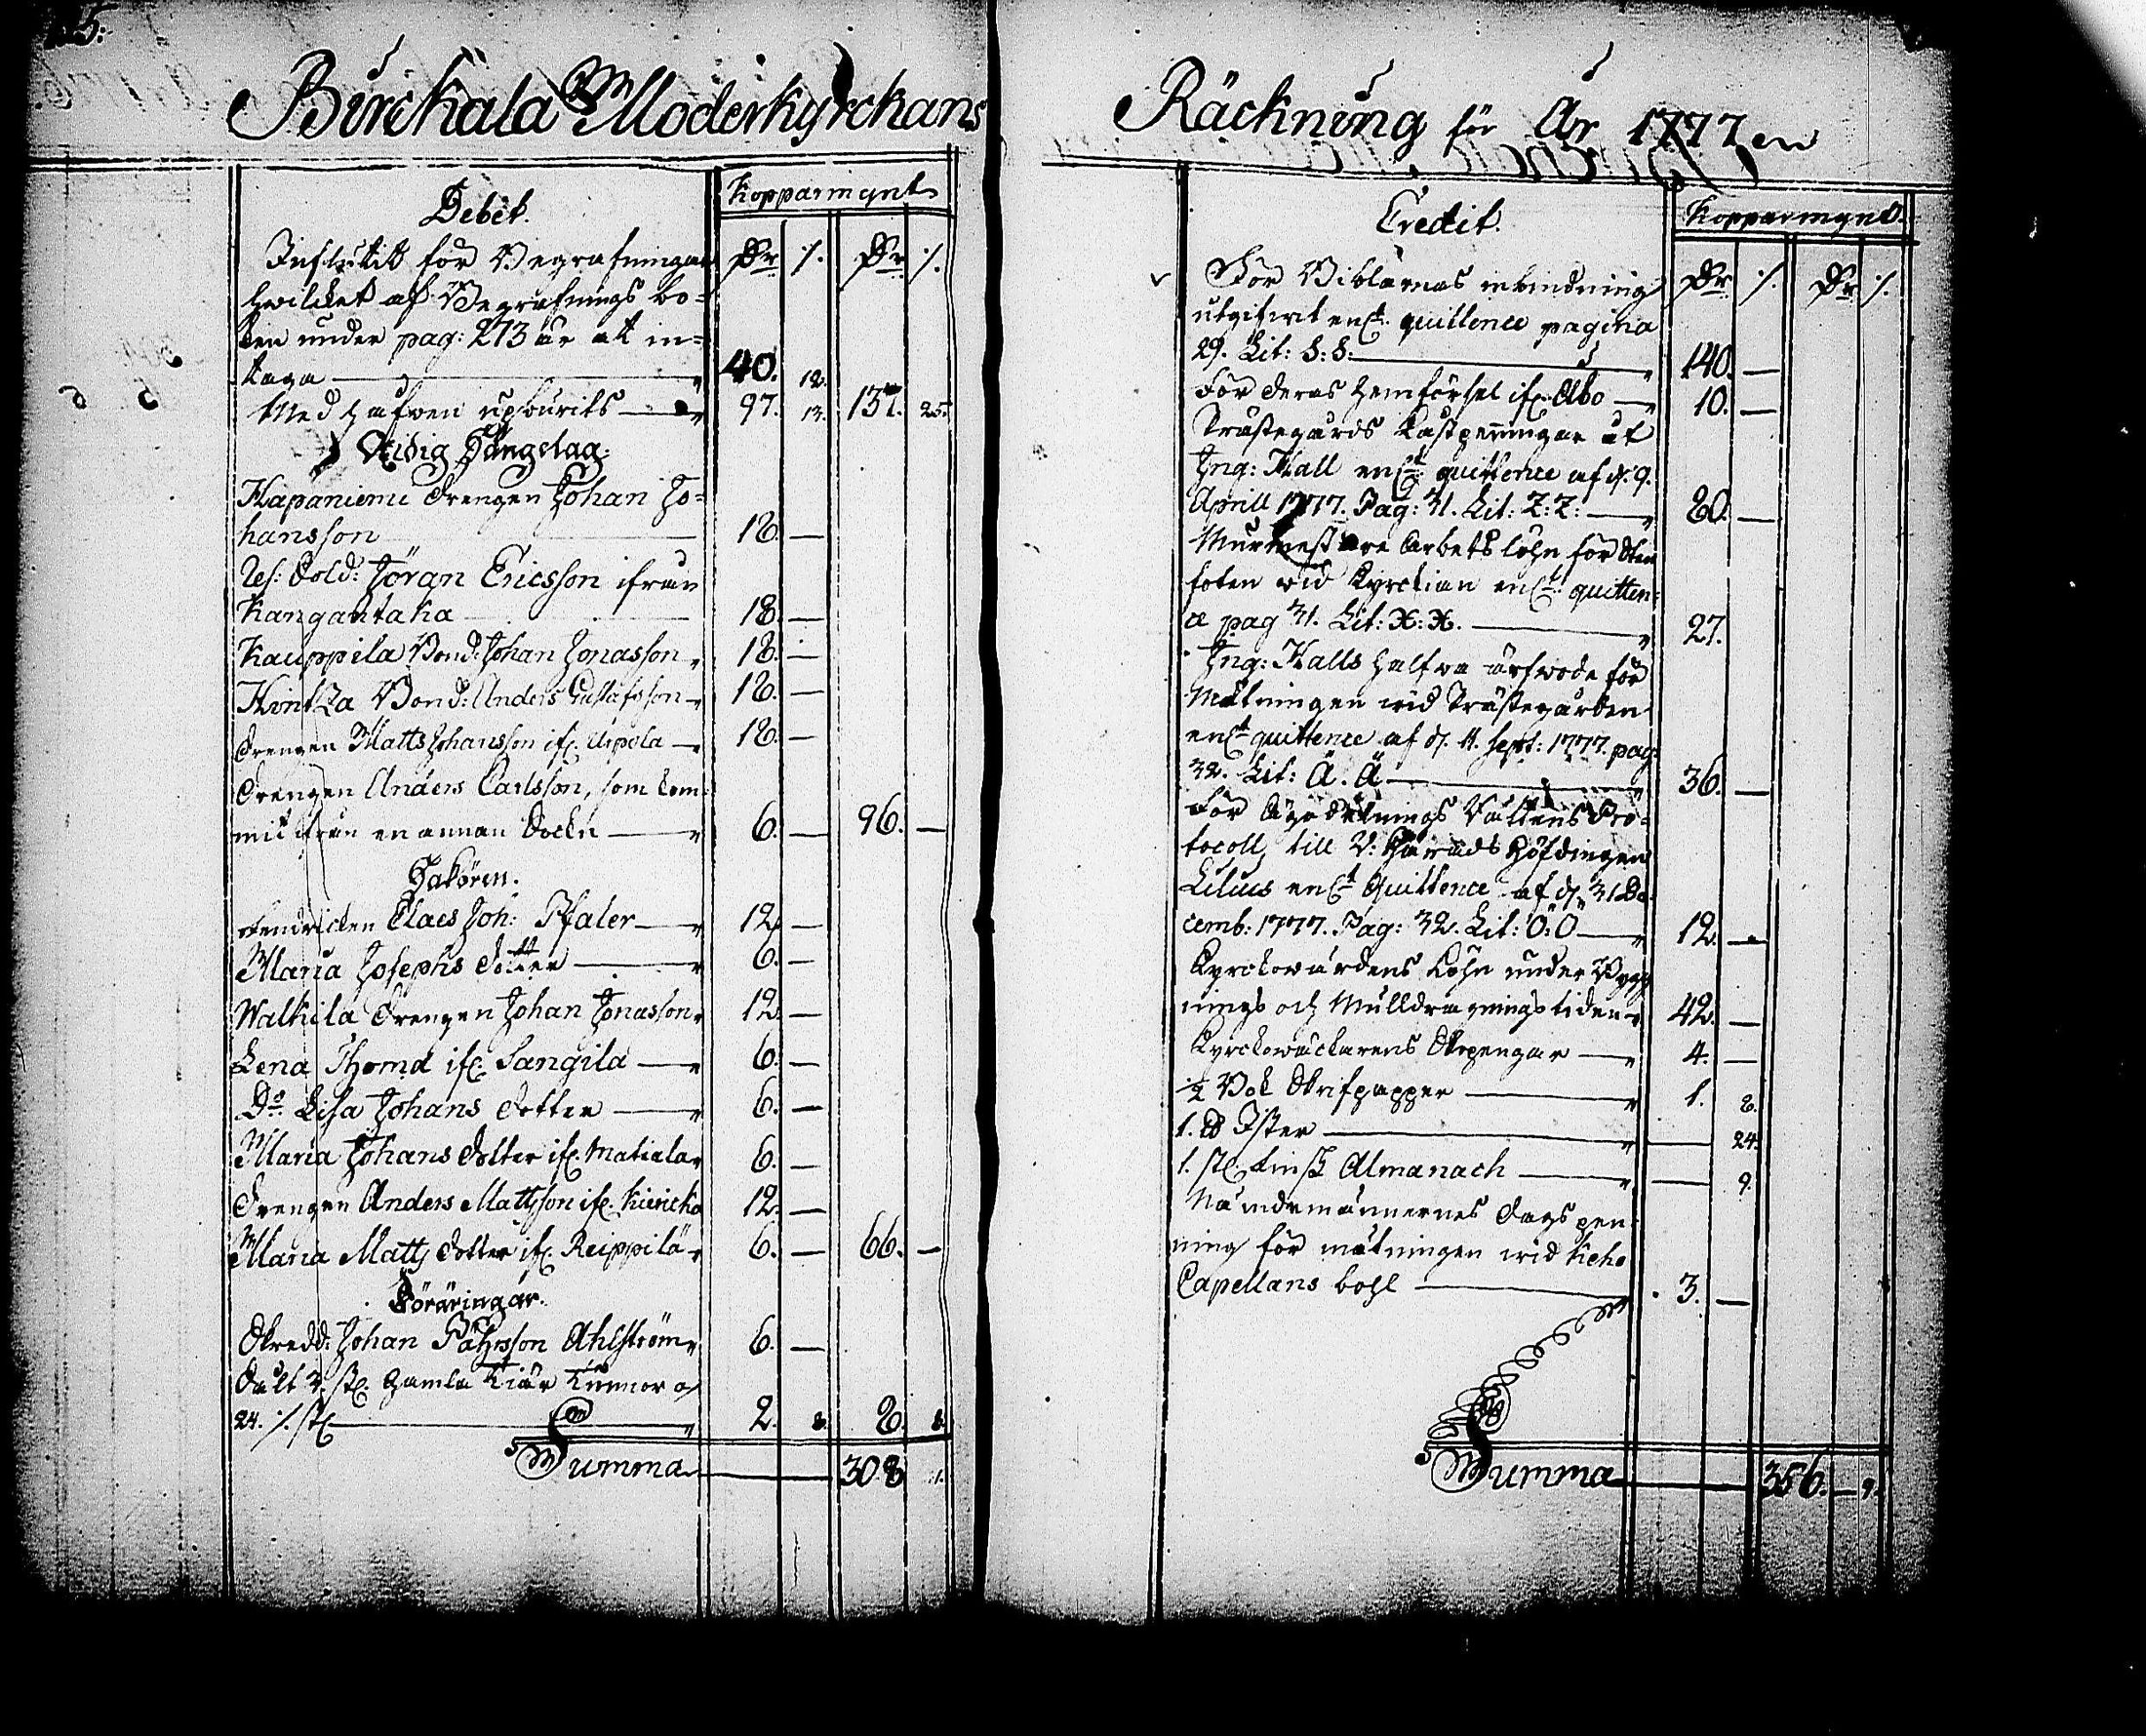 Birckala Moderkyrckans
Debet.
Kopparmynt
Influtit för Begrafningar
hwilcket af Begrafnings bo-
ken under pag: 273 är at in-
taga 40. 12.
Med Hafwen upburits 97. 13. 137. 25.
Tidig Sängelag.
Hapaniemi Drengen Johan Jo-
hansson 18. —
Res: Sold: Jöran Ericsson ifrån
Kangantaka 18. —
Kauppila Bond: Johan Jonasson 18. —
Bond: Anders Gustafsson 18. —
Drengen Matts Johansson ifr. 18. —
Drengen Anders Carlsson, som kom-
mit ifrån en annan Sockn 6. — 96. —
Fendricken Claes Joh: Pfaler 12. —
Maria Josephs Dotter 6. —
Walkila Drengen Johan Jonasson 12. —
Lena Thoma ifr. Sangila 6. —
Do. Lisa Johans Dotter 6. —
Maria Johans Dotter ifr. Matiala 6. —
Drengen Anders Mattsson ifr. 12. —
Maria Matts Dotter ifr. Reippilä 6. — 66. —
Föräringar.
Skredd: Johan Ahlström 6. —
Sålt 3. st. gamla
24. st 2. 8. 8. 8.
Summa 308 1.
Räckning för År 1777 en
Credit.
Kopparmynt.
För Biblarnas inbindning
utgifwit enl. quittence pagina
29. Lit: S: S: 140. —
För deras hemförsel ifr. Åbo 10. —
Prästegårds Kastpenningar åt
Ing: Hall enl. quittence af d. 9.
April 1777. Pag: 31. Lit: Z: Z: 80. —
Murmestare Arbets löhn för Sten
foten wid Kyrckian enl. quitten-
ce pag 31. Lit: X: X. 27.
Ing: Halls halfwa arfwode för
Mätningen wid Prästegården
enl. quittence af d. 11. Sept: 1777. pag:
32. Lit: Ä. Ä 36. —
För Ägodelnings Rättens Pro-
tocoll till V: Härads Höfdingen
Lilius enl. Quittence af d. 31 De-
cemb: 1777. Pag: 32. Lit: Ö: Ö 12. —
Kyrckowärdens Löhn under Bygg
nings och Mulldragnings tiden 42. —
Kyrckowäcktarens Skopengar 4. —
½ Bok Skrifpapper 1. 8.
1. ℔ Ister 24.
1. st. Finsk Almanach 9.
Nämdemännernes dagspen-
ning för mätningen wid Keho
Capellans bohl 3. —
Summa 356. — 9.